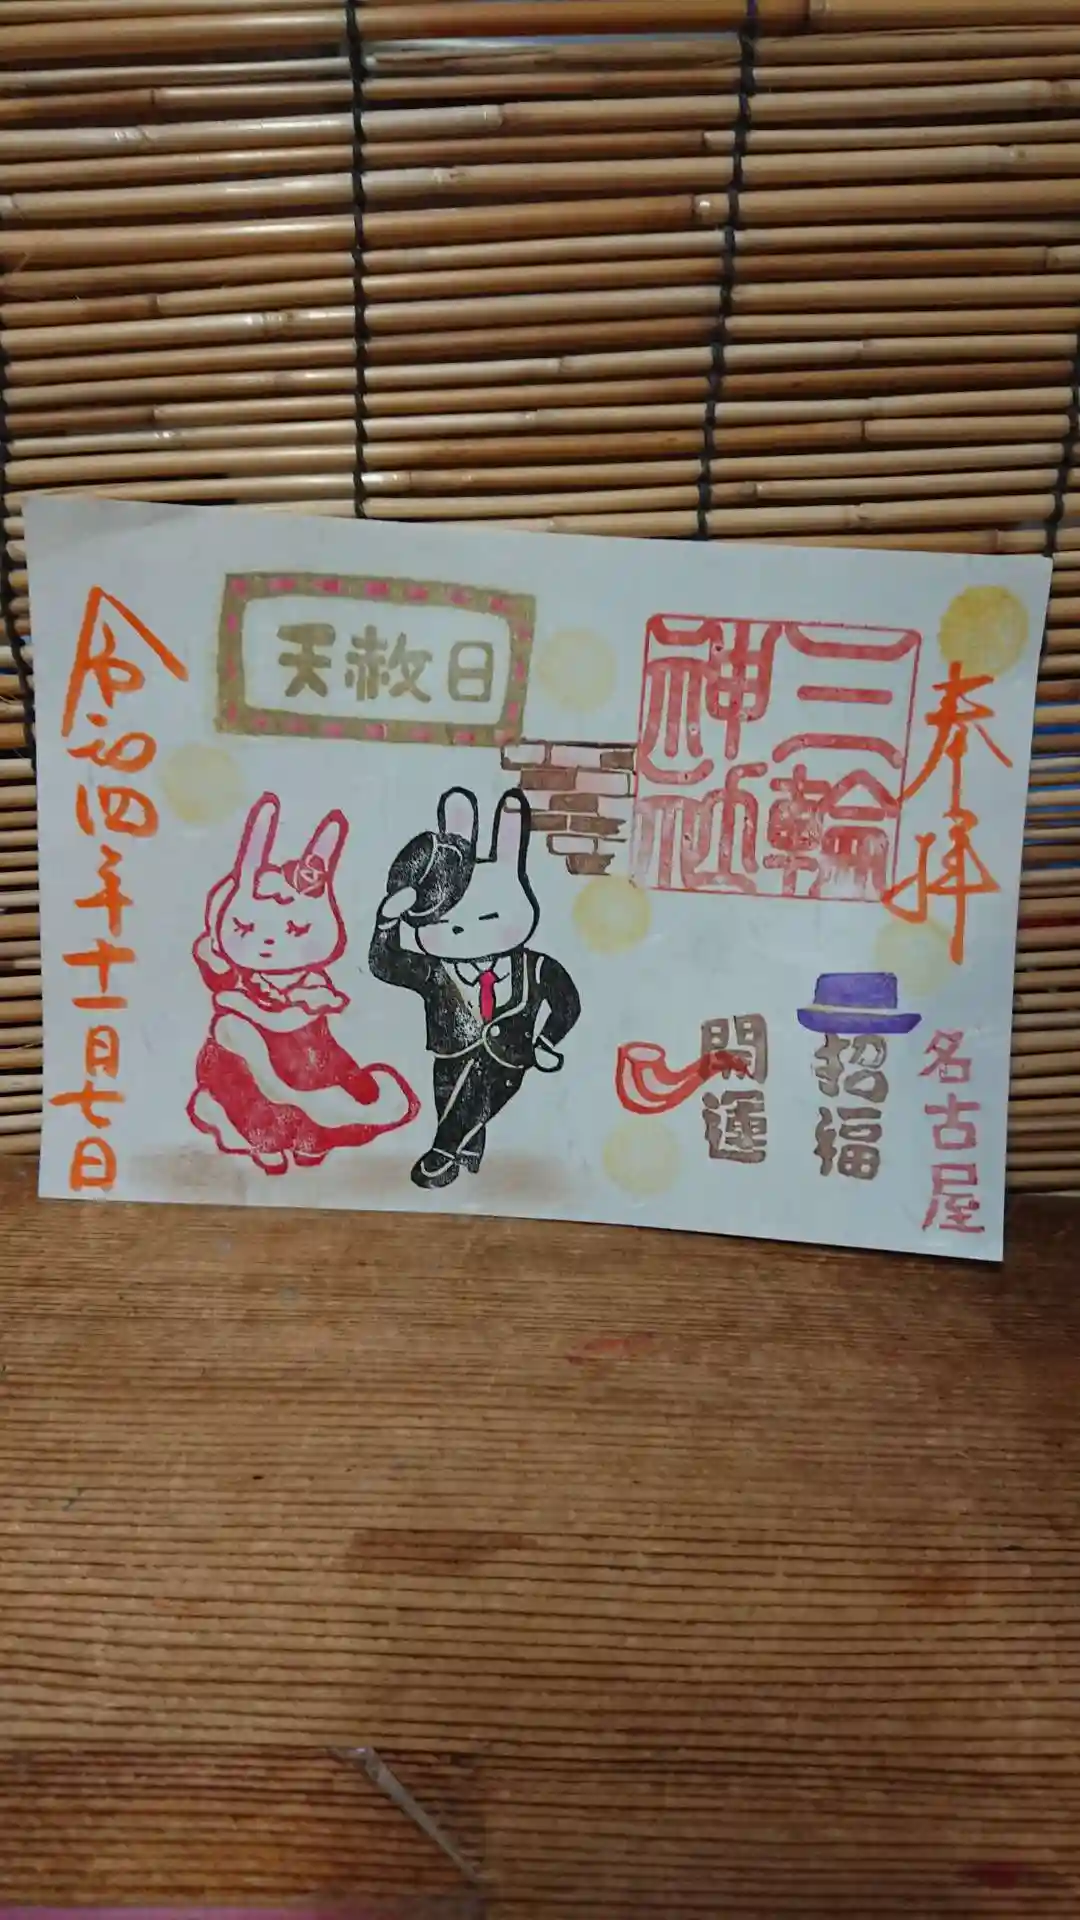 奉拝
名古屋
三輪
神社
招福
開運
天赦日
令和四年十一月七日